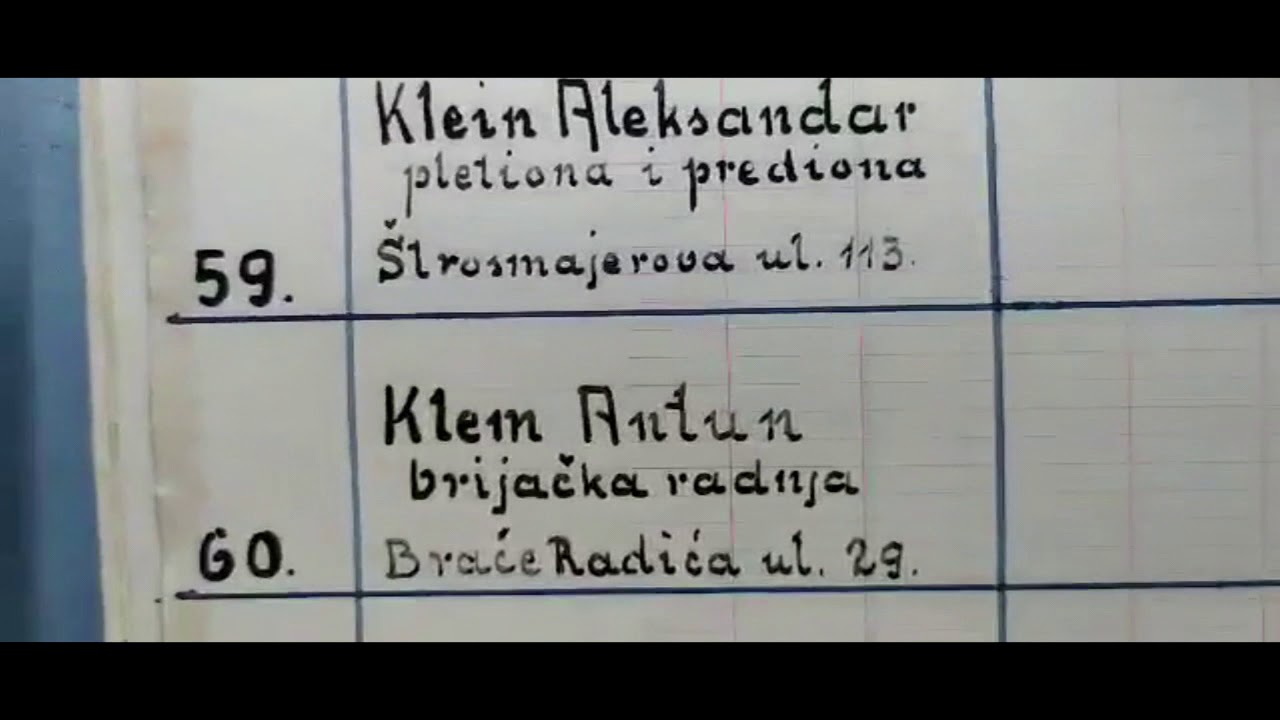 Klein Aleksandar
pletiona i prediona
59. Štrosmajerova ul. 113.
Klein Antun
brijačka radnja
60. Braće Radića ul. 29.